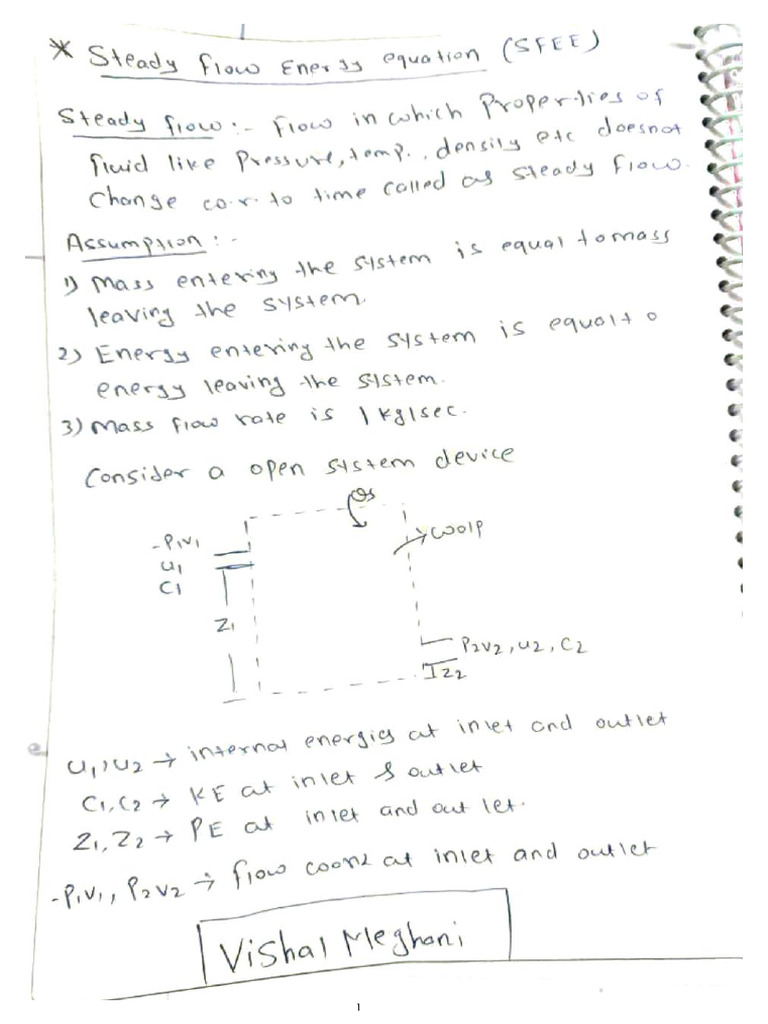 * Steady flow Energy equation (SFEE)
Steady flow :- Flow in which Properties of
fluid like Pressure, temp., density etc doesnot
change w.r. to time called as steady flow.
Assumption :-
1) Mass entering the system is equal to mass
leaving the system.
2) Energy entering the system is equal to
energy leaving the system.
3) Mass flow rate is 1 kg/sec.
Consider a open system device
Qs
-P1V1
U1
C1
Wo/p
Z1
P2V2, U2, C2
Z2
U1, U2 → internal energies at inlet and outlet
C1, C2 → KE at inlet & outlet
Z1, Z2 → PE at inlet and out let.
-P1V1, P2V2 → flow work at inlet and outlet
Vishal Meghani
1